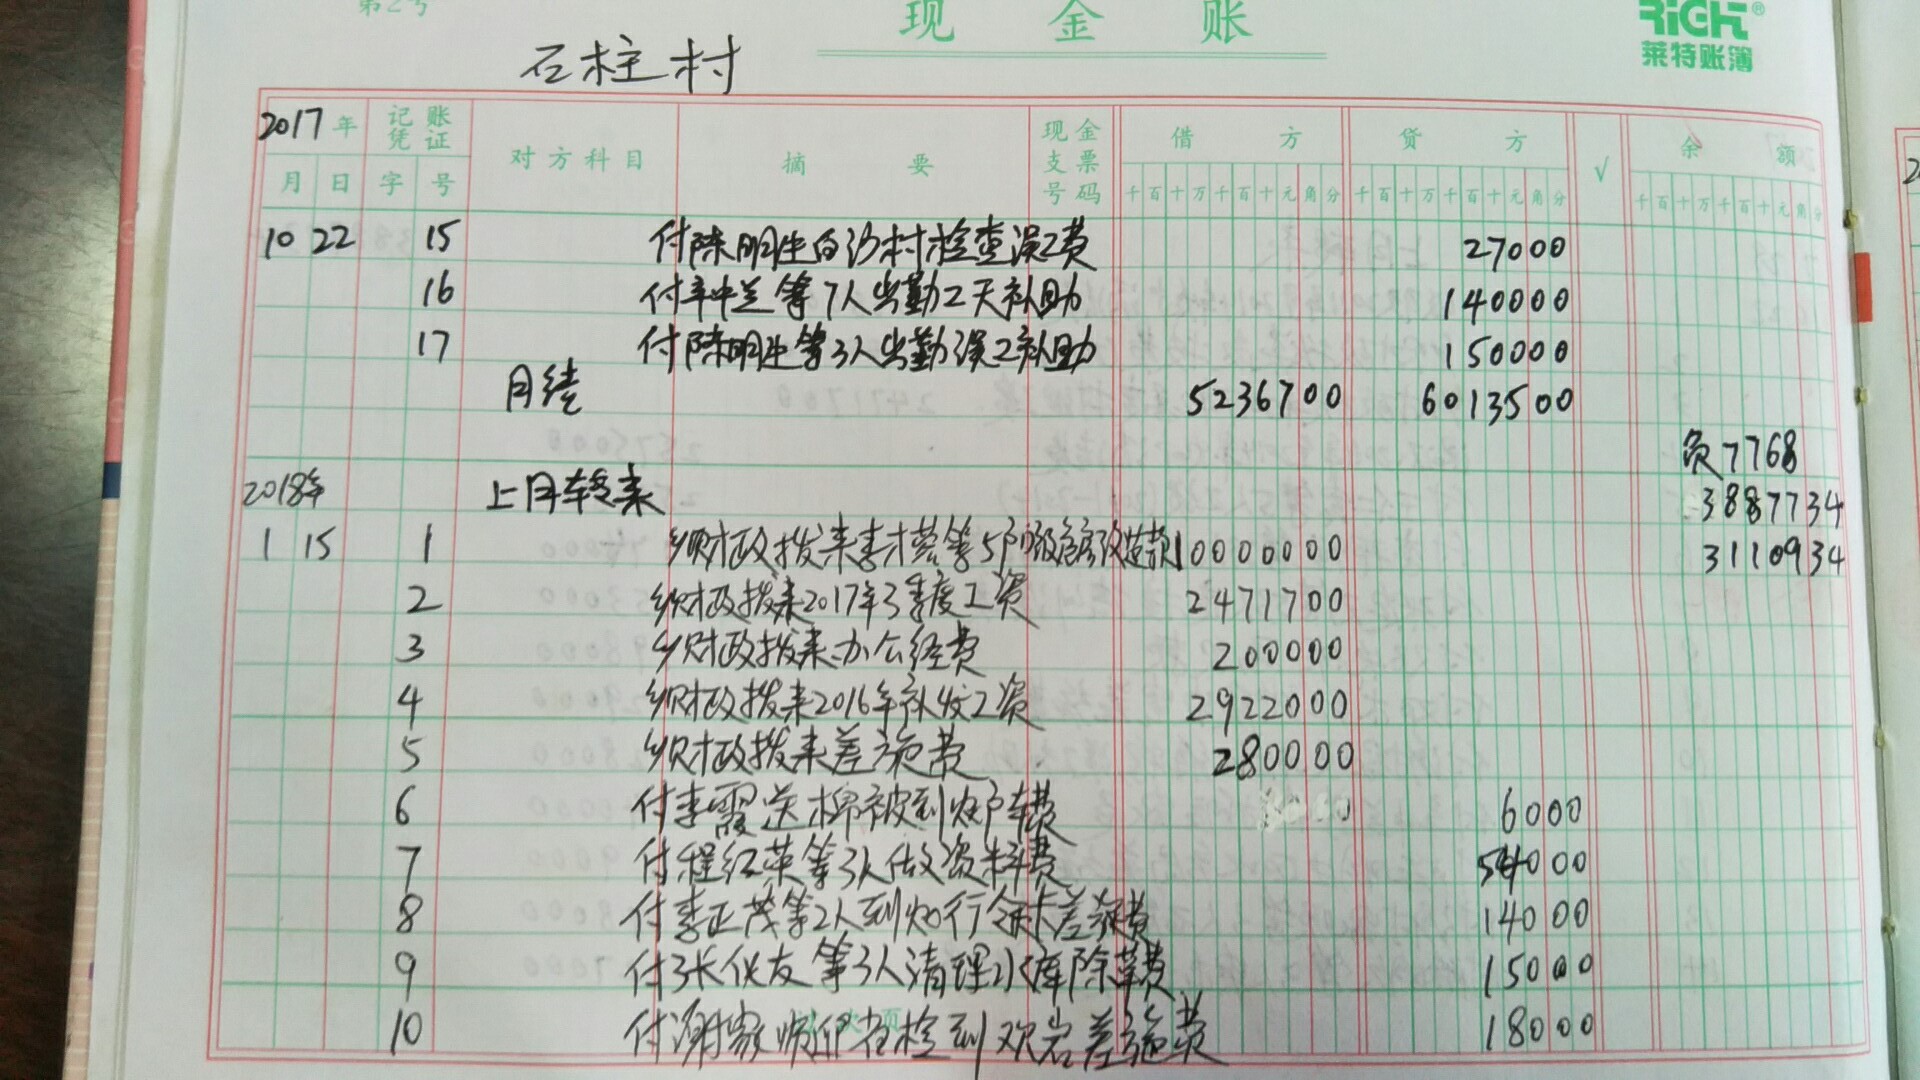 第2号
现 金 账
RiGHT®
莱特账簿
石柱村
2017年 记账凭证 对方科目 摘 要 现金支票号码 借 方 贷 方 √ 余 额
月 日 字 号 千百十万千百十元角分 千百十万千百十元角分 千百十万千百十元角分
10 22 15 付陈明生白沙村检查误工费 27000
16 付辛中兰等7人出勤2天补助 140000
17 付陈明生等3人出勤误工补助 150000
月结 5236700 6013500
负7768
2018年 上月转来 3887734
1 15 1 乡财政拨来李才芸等5户D级危房改造款 10000000 3110934
2 乡财政拨来2017年3季度工资 2471700
3 乡财政拨来办公经费 200000
4 乡财政拨来2016年补发工资 2922000
5 乡财政拨来差旅费 280000
6 付李霞送棉被到农户车费 6000
7 付程红英等3人做资料费 54000
8 付李正茂等2人到农行领卡差旅费 14000
9 付张伙友等3人清理水库除草费 15000
10 付谢 检到欢岩差旅费 18000